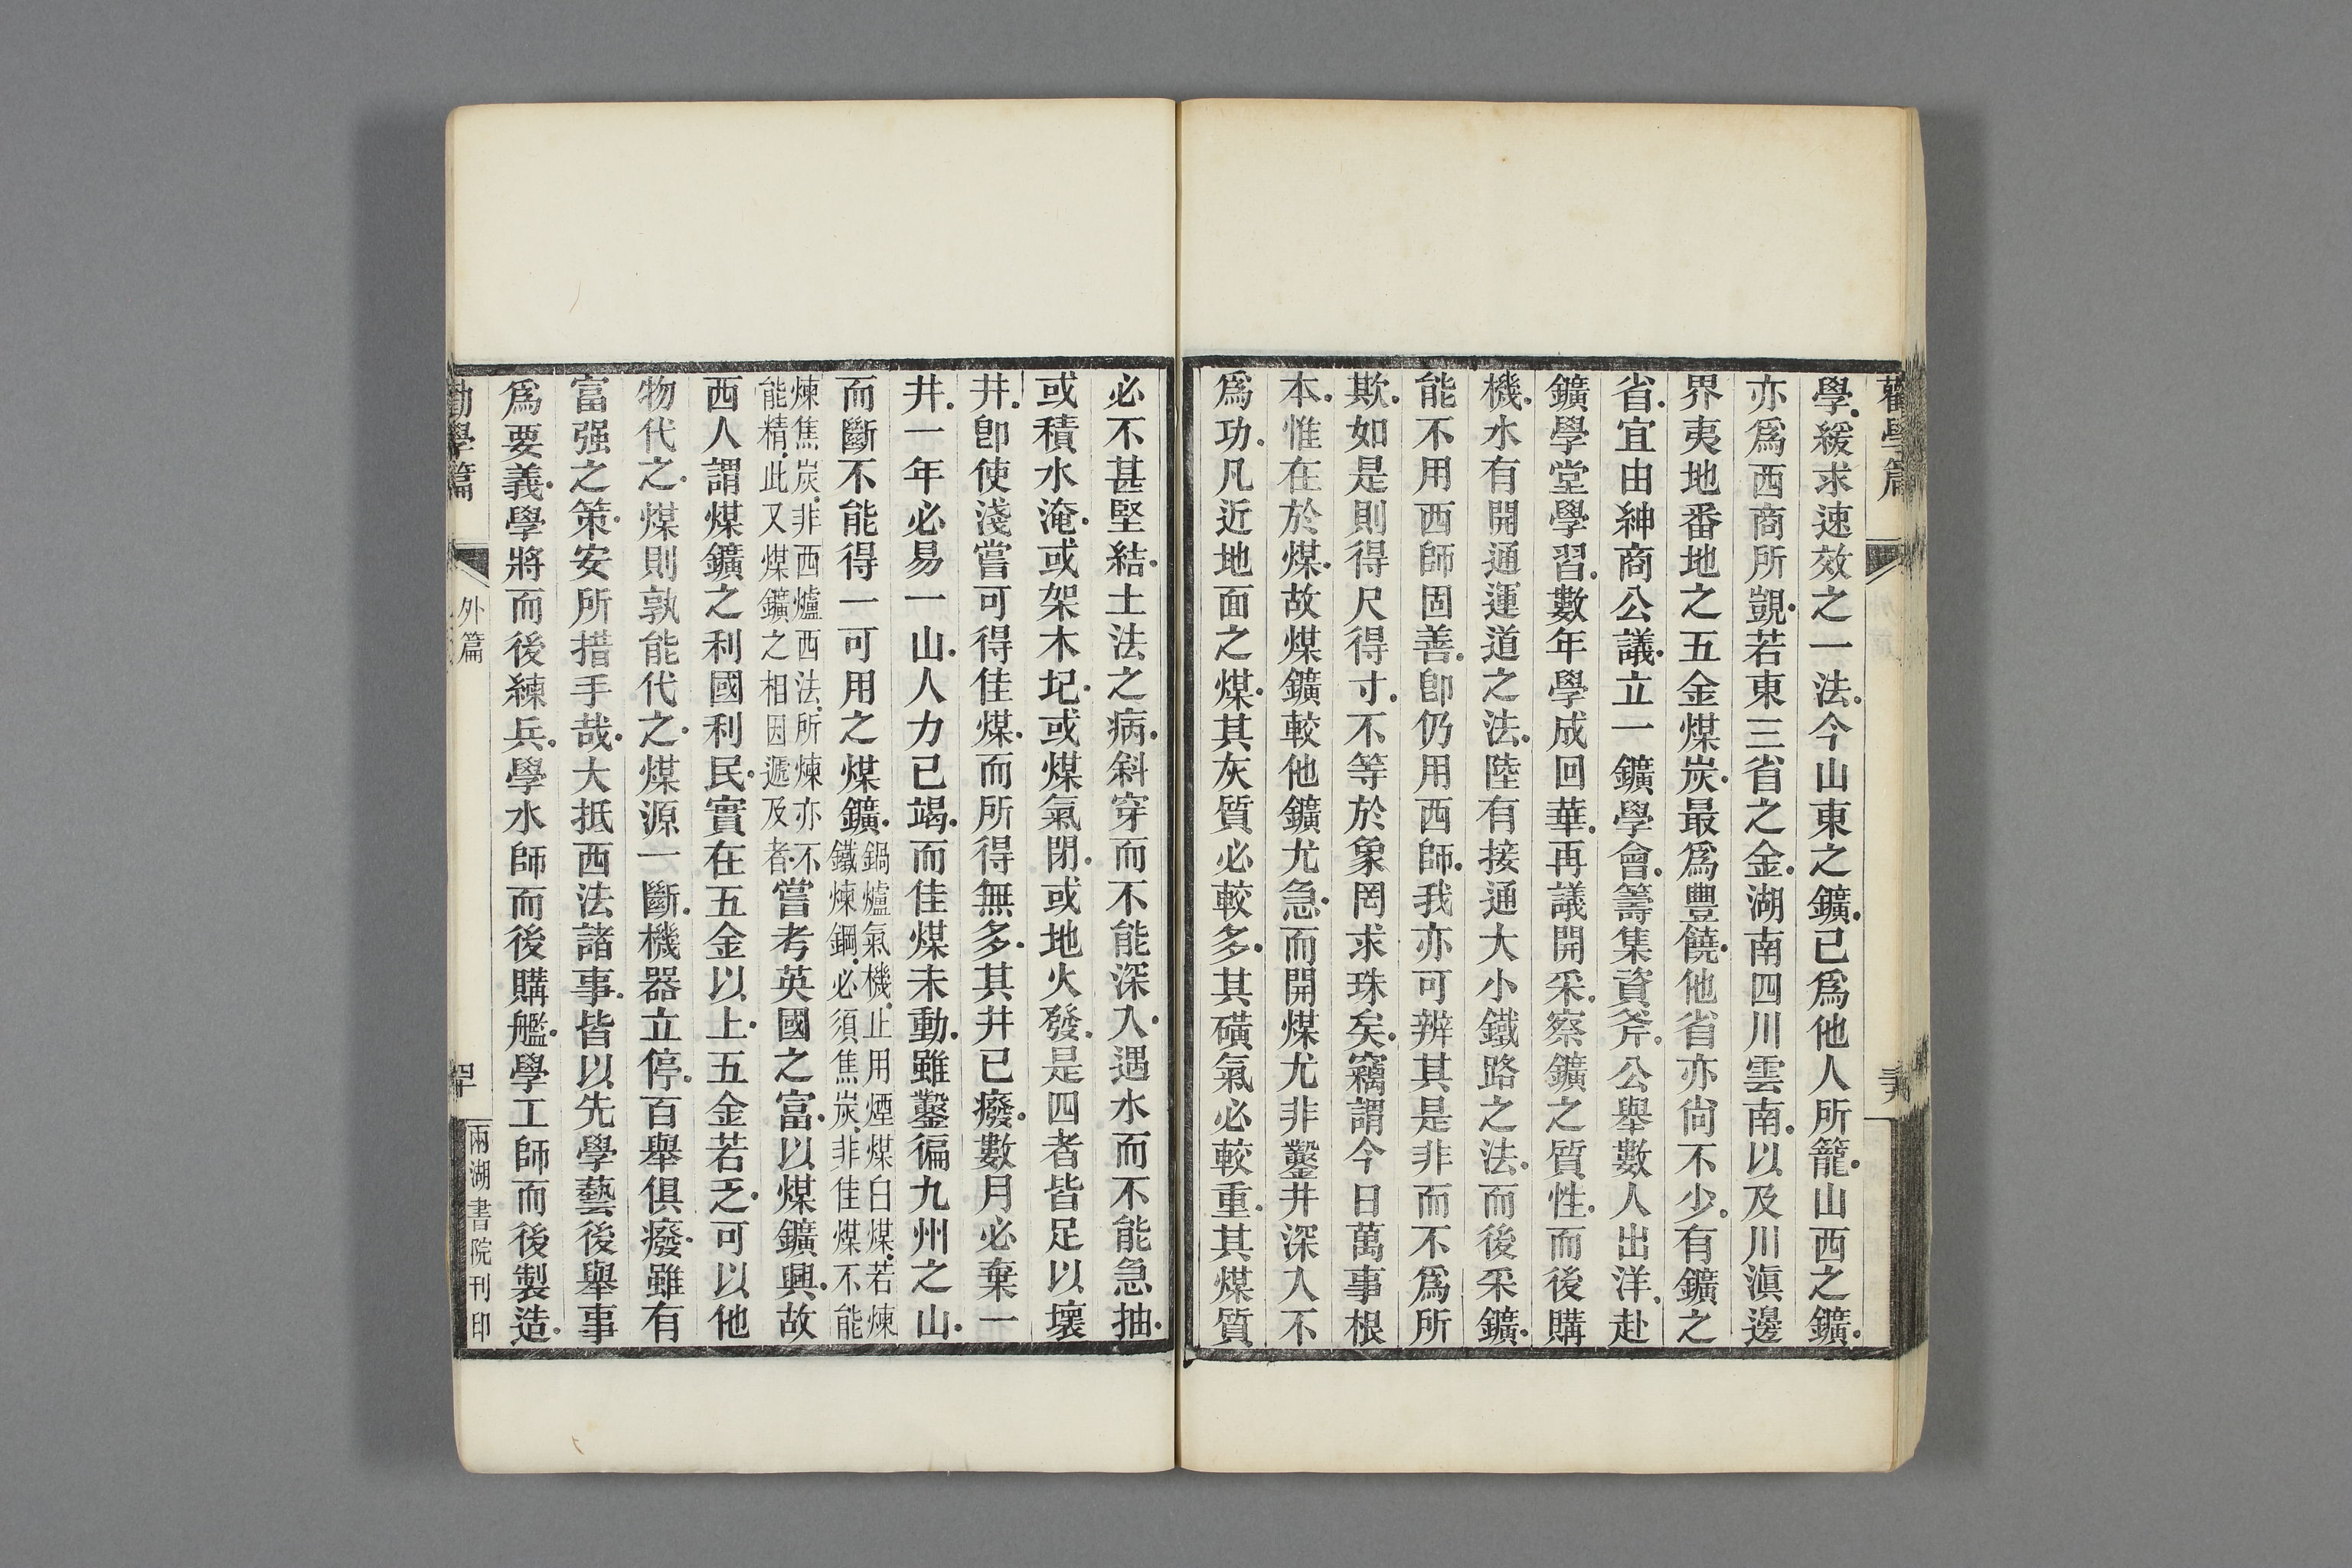 勸學篇
學緩求速效之一法今山東之鑛已爲他人所籠山西之鑛
亦爲西商所覬若東三省之金湖南四川雲南以及川滇邊
界夷地番地之五金煤炭最爲豐饒他省亦尙不少有鑛之
省宜由紳商公議立一鑛學會籌集資斧公舉數人出洋赴
鑛學堂學習數年學成回華再議開采察鑛之質性而後購
機水有開通運道之法陸有接通大小鐵路之法而後采鑛
能不用西師固善卽仍用西師我亦可辨其是非而不爲所
欺如是則得尺得寸不等於象罔求珠矣竊謂今日萬事根
本惟在於煤故煤鑛較他鑛尤急而開煤尤非鑿井深入不
爲功凡近地面之煤其灰質必較多其磺氣必較重其煤質
必不甚堅結土法之病斜穿而不能深入遇水而不能急抽
或積水淹或架木圮或煤氣閉或地火發是四者皆足以壞
井卽使淺嘗可得佳煤而所得無多其井已癈數月必棄一
井一年必易一山人力已竭而佳煤未動雖鑿徧九州之山
而斷不能得一可用之煤鑛鍋爐氣機止用煙煤白煤若煉
鐵煉鋼必須焦炭非佳煤不能
煉焦炭非西爐西法所煉亦不
能精此又煤鑛之相因遞及者嘗考英國之富以煤鑛興故
西人謂煤鑛之利國利民實在五金以上五金若乏可以他
物代之煤則孰能代之煤源一斷機器立停百舉俱癈雖有
富强之策安所措手哉大抵西法諸事皆以先學藝後舉事
爲要義學將而後練兵學水師而後購艦學工師而後製造
勸學篇
外篇
兩湖書院刊印